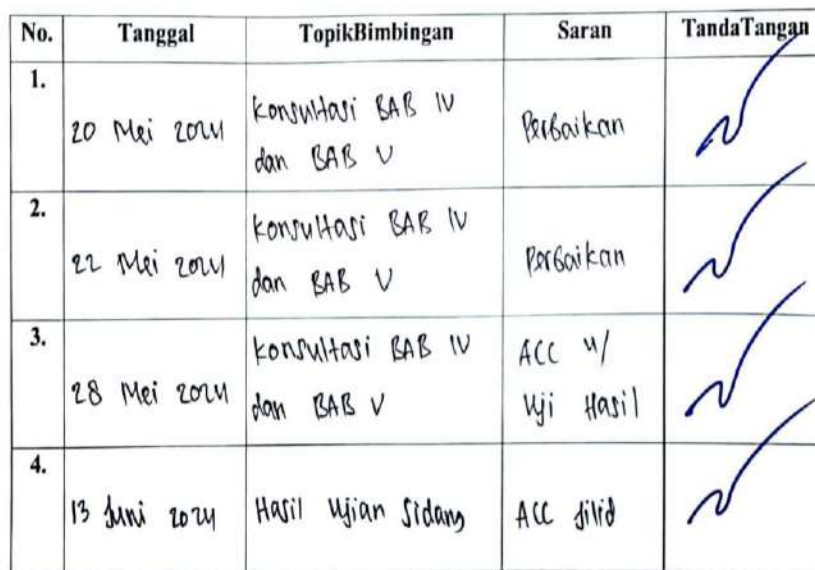 No. Tanggal TopikBimbingan Saran TandaTangan
1.
20 Mei 2024 Konsultasi BAB IV Perbaikan
dan BAB V
2.
22 Mei 2024 Konsultasi BAB IV Perbaikan
dan BAB V
3.
28 Mei 2024 Konsultasi BAB IV ACC u/
dan BAB V Uji Hasil
4.
13 Juni 2024 Hasil Ujian Sidang ACC Jilid